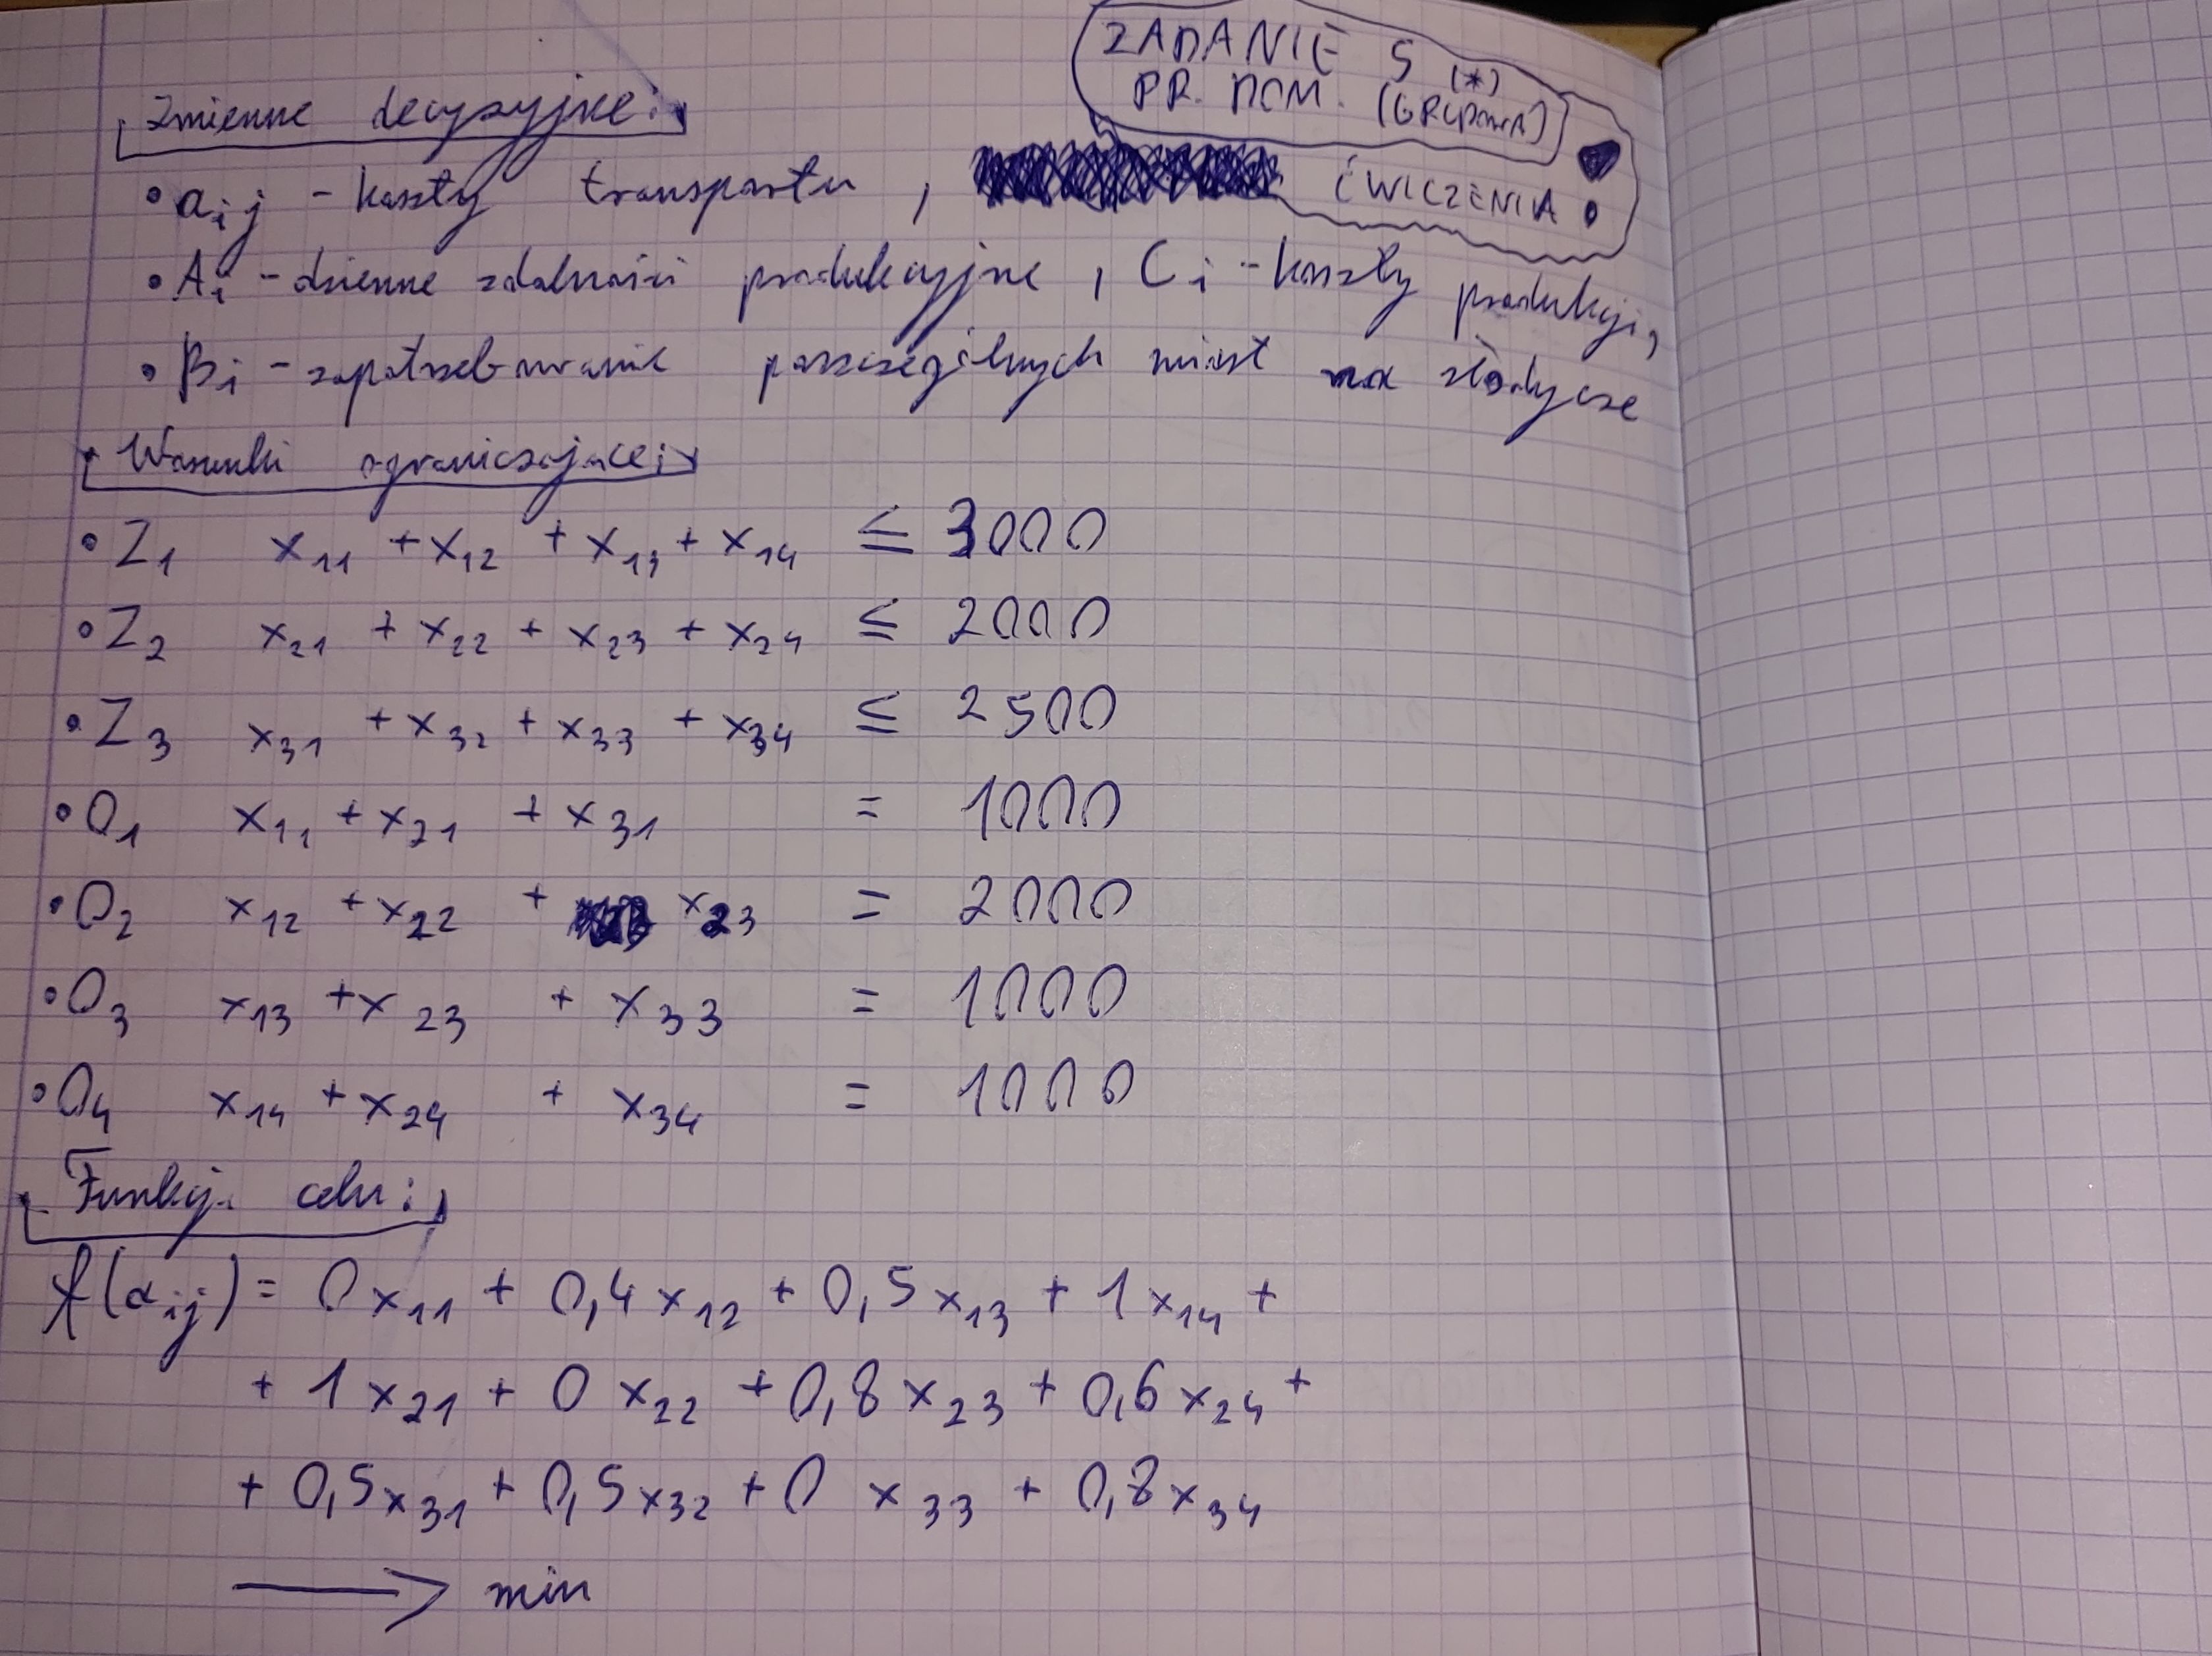 ZADANIE 5 (*)
PR. DOM. (GRUPOWA)
ĆWICZENIA
Zmienne decyzyjne:
• αij - koszty transportu,
• Ai - dzienne zdolności produkcyjne, Ci - koszty produkcji,
• Bi - zapotrzebowanie poszczególnych miast na słodycze
Warunki ograniczające:
• Z1 x11 + x12 + x13 + x14 ≤ 3000
• Z2 x21 + x22 + x23 + x24 ≤ 2000
• Z3 x31 + x32 + x33 + x34 ≤ 2500
• O1 x11 + x21 + x31 = 1000
• O2 x12 + x22 + x23 = 2000
• O3 x13 + x23 + x33 = 1000
• O4 x14 + x24 + x34 = 1000
Funkcja celu:
f(αij) = 0x11 + 0,4x12 + 0,5x13 + 1x14 +
+ 1x21 + 0x22 + 0,8x23 + 0,6x24 +
+ 0,5x31 + 0,5x32 + 0x33 + 0,8x34
⟶ min